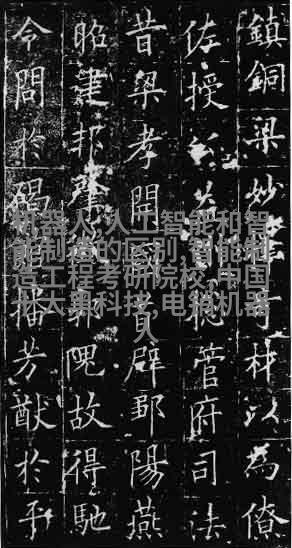 鎮銅梁妙材以為僚
佐授管府司法
昔梁孝開首辟鄒陽燕
昭建邦肇隗故得馳
令問於碣播芳猷於平
机器人,人工智能和智
能制造的区别,智能制
造工程考研院校,中国
十大黑科技,电销机器
人